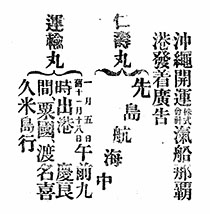 沖繩開運株式會社滊船那覇
港發着廣告
仁壽丸
先島航海中
運輸丸
一月五日午前九
舊十一月十八日
時出港 慶良
間粟國渡名喜
久米島行